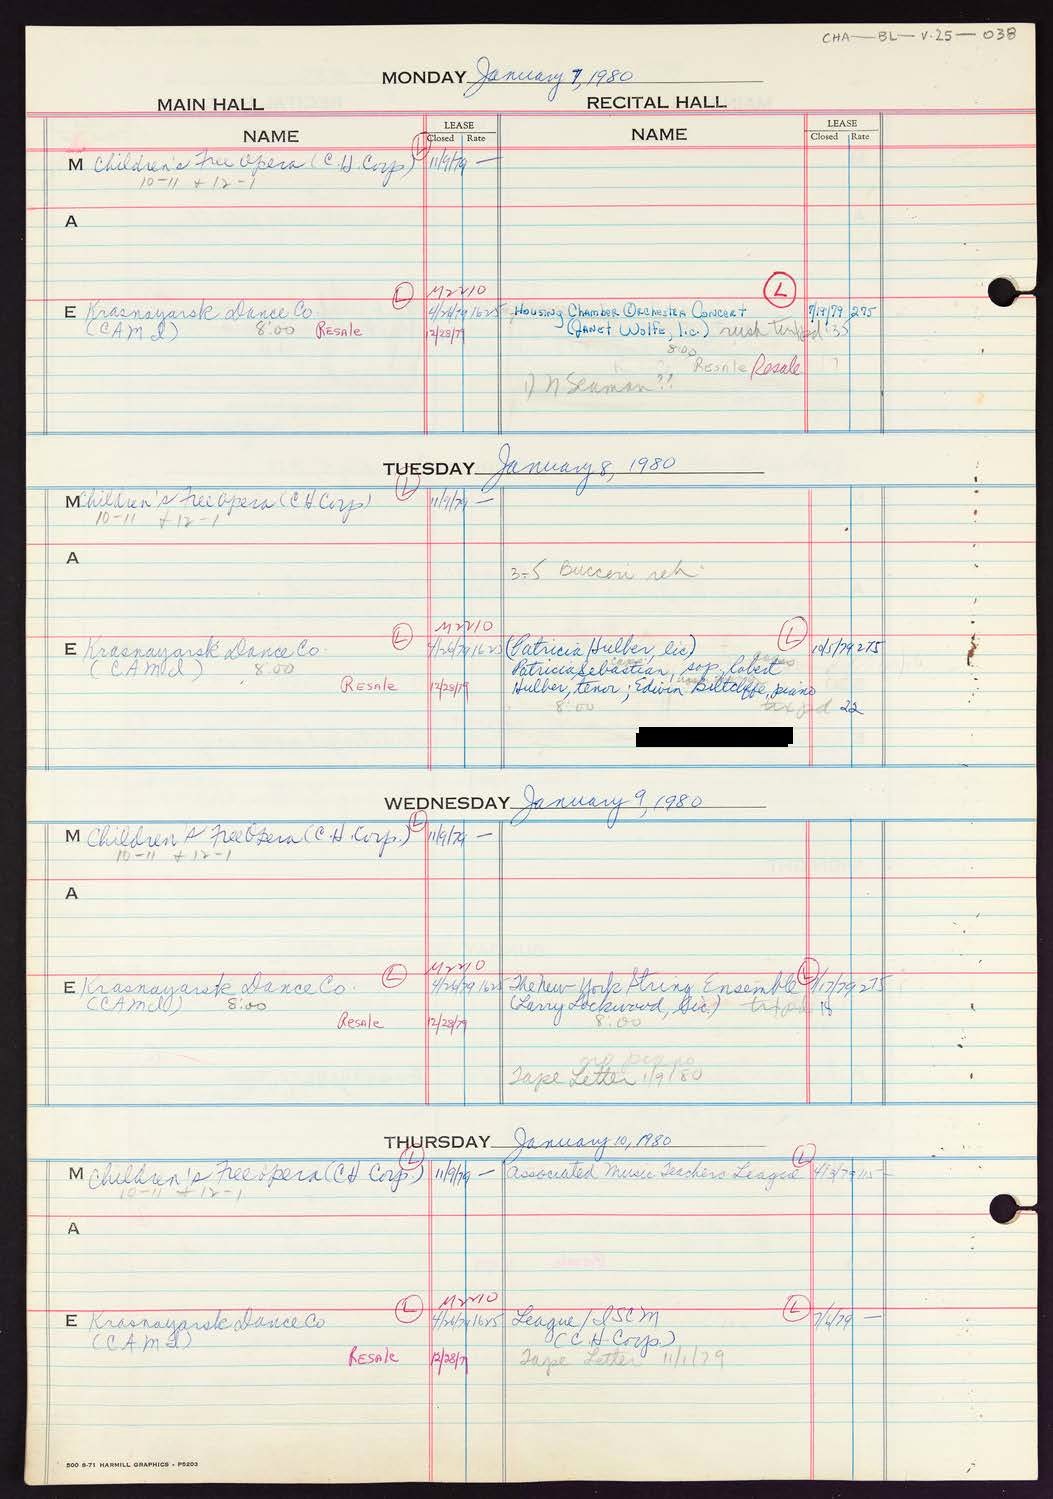 CHA—BL—V.25—038
MONDAY January 7, 1980
MAIN HALL RECITAL HALL
NAME LEASE Closed Rate NAME LEASE Closed Rate
M Children's Free Opera (C.H. Corp) L 11/9/79 —
10-11 + 12-1
A
M2210
E Krasnayarsk Dance Co. L 4/26/79 1625
(CAMI) 8:00 Resale 12/28/79
L
Housing Chamber Orchestra Concert 7/19/79 275
(Janet Wolfe, lic.) rush 35
8:00
Resale Resale
1) N Seaman ??
TUESDAY January 8, 1980
M Children's Free Opera (C H Corp) L 11/9/79 —
10-11 + 12-1
A
3-5 Bucceri reh.
M2210
E Krasnayarsk Dance Co. L 4/26/79 1625
(CAMI) 8:00
Resale 12/28/79
(Patricia Hulber, lic) L 10/5/79 275
Patricia Sebastian, sop. Robert
Hulber, tenor; Edwin Biltcliffe, piano
8:00 tax pd 22
WEDNESDAY January 9, 1980
M Children's Free Opera (C.H. Corp.) L 11/9/79 —
10-11 + 12-1
A
M2210
E Krasnayarsk Dance Co. L 4/26/79 1625
(CAMI) 8:00
Resale 12/28/79
The New York String Ensemble L 9/17/79 275
(Larry Lockwood, Lic.) 18
8:00
no piano
Tape Letter 1/9/80
THURSDAY January 10, 1980
M Children's Free Opera (CH Corp) L 11/9/79 —
10-11 + 12-1
Associated Music Teachers League L 4/3/79 115 —
A
M2210
E Krasnayarsk Dance Co L 4/26/79 1625
(CAMI)
Resale 12/28/79
League/ISCM L 7/6/79 —
(C.H. Corp.)
Tape Letter 11/1/79
500 8-71 HARMILL GRAPHICS - P5203